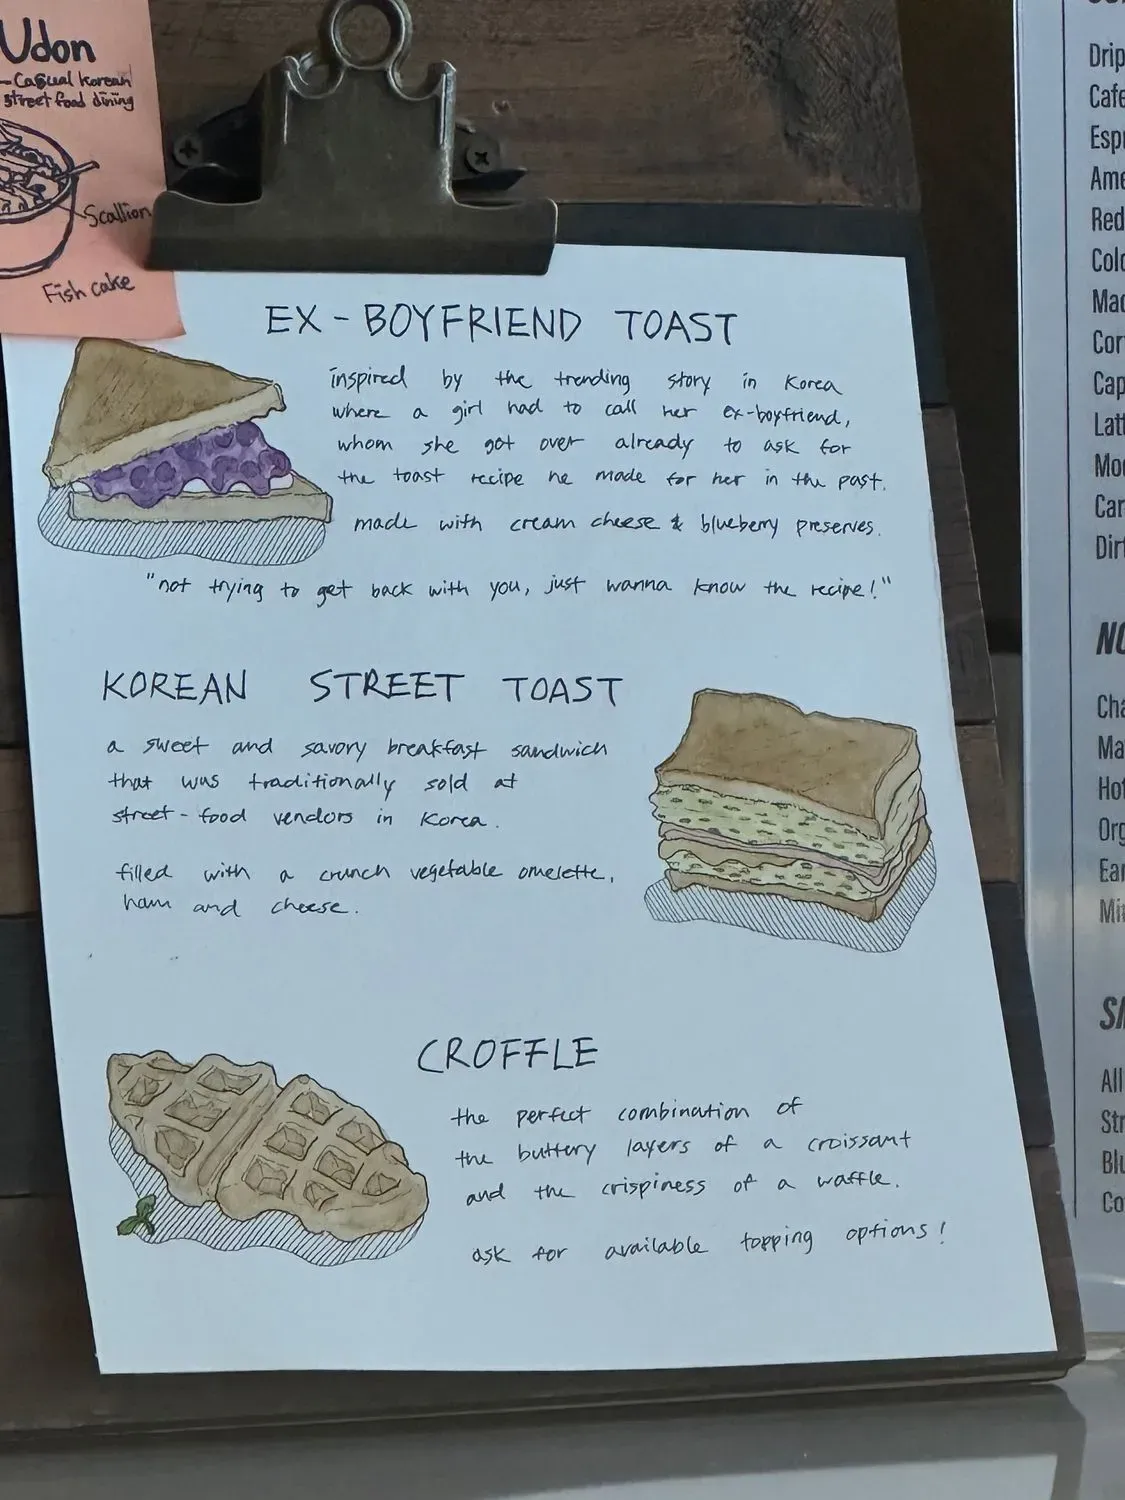 Udon
- Casual Korean
street food dining
Scallion
Fish cake
EX-BOYFRIEND TOAST
inspired by the trending story in Korea
where a girl had to call her ex-boyfriend,
whom she got over already to ask for
the toast recipe he made for her in the past.
made with cream cheese & blueberry preserves.
"not trying to get back with you, just wanna know the recipe!"
KOREAN STREET TOAST
a sweet and savory breakfast sandwich
that was traditionally sold at
street-food vendors in Korea.
filled with a crunch vegetable omelette,
ham and cheese.
CROFFLE
the perfect combination of
the buttery layers of a croissant
and the crispiness of a waffle.
ask for available topping options!
Drip
Cafe
Espr
Ame
Red
Cold
Cap
Latt
Dirt
All